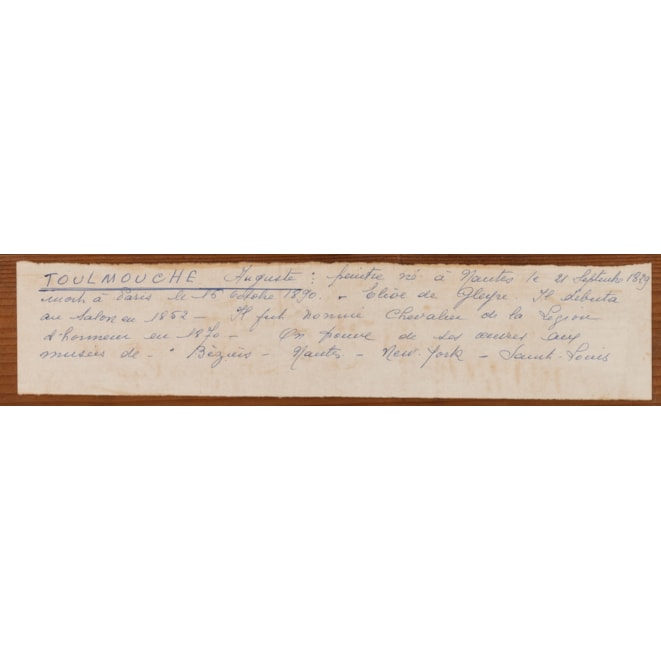 TOULMOUCHE Auguste : peintre né à Nantes le 21 Septembre 1829
mort à Paris le 16 octobre 1890. - Elève de Gleyre Il débuta
au Salon en 1852 - Il fut nommé Chevalier de la Légion
d'honneur en 1870 - On trouve de ses œuvres aux
musées de - Béziers - Nantes - New-York - Saint-Louis